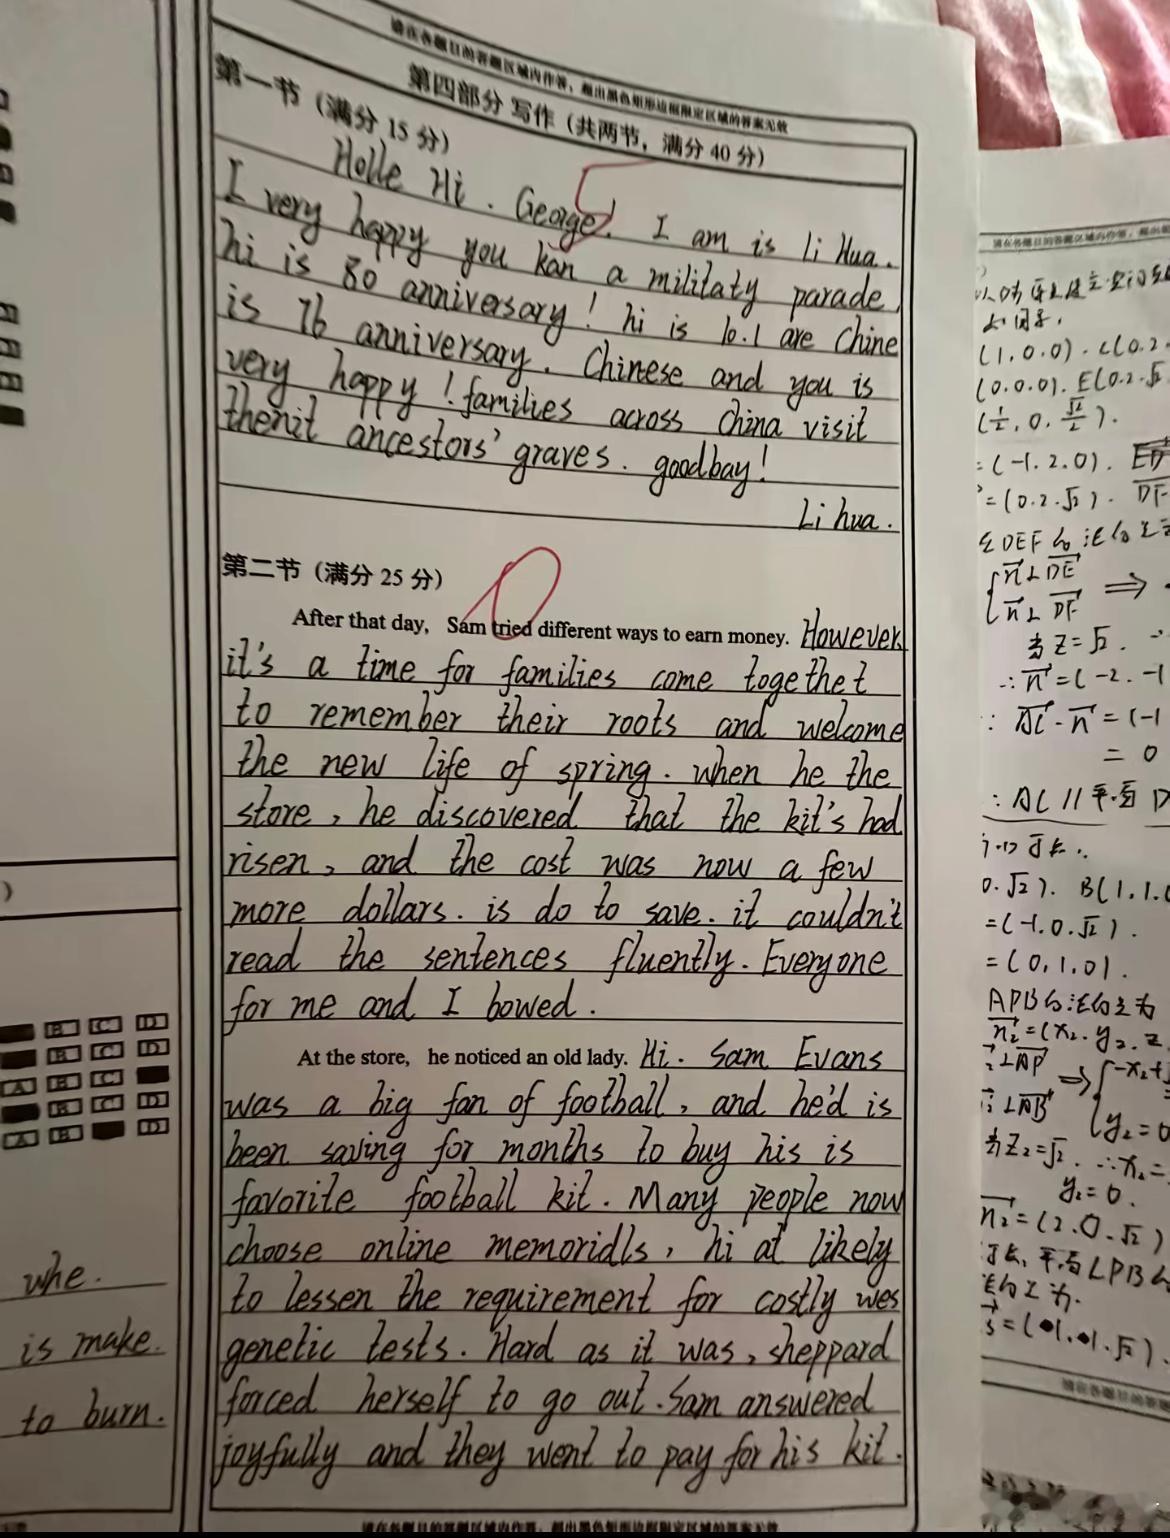 请在各题目的答题区域内作答，超出黑色矩形边框限定区域的答案无效
第四部分 写作（共两节，满分 40 分）
第一节（满分 15 分）
5
Holle Hi. George! I am is li Hua.
I very happy you kan a militaty parade,
hi is 80 anniversary! hi is 10.1 are Chine
is 76 anniversary. Chinese and you is
very happy! families across China visit
thenit ancestors' graves. goodbay!
Li hua.
第二节（满分 25 分）
0
After that day, Sam tried different ways to earn money. However,
it's a time for families come togethet
to remember their roots and welcome
the new life of spring. when he the
store, he discovered that the kit's had
risen, and the cost was now a few
more dollars. is do to save. it couldn't
read the sentences fluently. Everyone
for me and I bowed.
At the store, he noticed an old lady. Hi. Sam Evans
was a big fan of football, and he'd is
been saving for months to buy his is
favorite football kit. Many people now
choose online memoridls, hi at likely
to lessen the requirement for costly wes
genetic tests. Hard as it was, sheppard
forced herself to go out. Sam answered
joyfully and they went to pay for his kit.
请在各题目的答题区域内作答，超出黑色矩形边框限定区域的答案无效
)
B C D
B C D
A B C
B C D
A B D
whe.
is make.
to burn.
(1,0,0). C(0.2.
(0.0.0). E(0.2.√2
(1/2, 0, √2/2).
=(-1.2.0). ED
=(0.2.√2). DF
DEF
n⊥DE
n⊥DF ⇒
当 z=√2.
∴n=(-2.-1
∵AC·n=(-1
= 0
∴AC//平面D
0.√2). B(1.1.0
=(-1.0.√2).
=(0,1,0).
APB
n₂=(x₂.y₂.z
⊥AP
⊥AB ⇒ {-x₂+
y₂=0
当z₂=√2. ∴x₂=
y₂=0.
n₂=(2.0.√2)